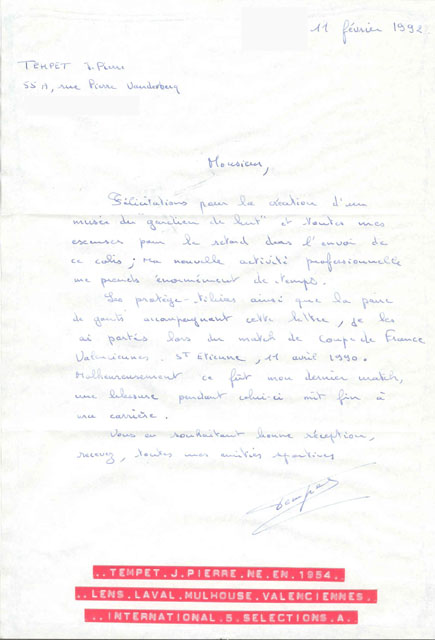 11 février 1992
TEMPET J. Pierre
55 A, rue Pierre Vanderberg
Monsieur,
Félicitations pour la création d'un
musée du "gardien de but" et toutes mes
excuses pour le retard dans l'envoi de
ce colis ; Ma nouvelle activité professionnelle
me prends énormément de temps.
Les protège-tibias ainsi que la paire
de gants accompagnant cette lettre, je les
ai portés lors du match de Coupe de France
Valenciennes. St Etienne, 11 avril 1990.
Malheureusement ce fût mon dernier match,
une blessure pendant celui-ci mit fin à
ma carrière.
Vous en souhaitant bonne réception,
recevez, toutes mes amitiés sportives
..TEMPET.J.PIERRE.NE.EN.1954..
..LENS.LAVAL.MULHOUSE.VALENCIENNES..
..INTERNATIONAL.5.SELECTIONS.A..